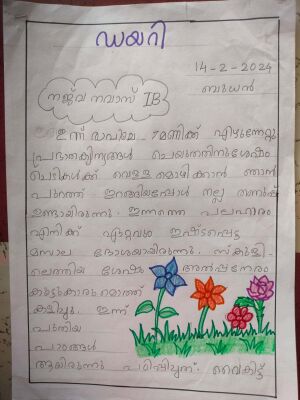 ഡയറി
14-2-2024
ബുധൻ
നജ്‌വ നവാസ് IB
ഇന്ന് രാവിലെ 7മണിക്ക് എഴുന്നേറ്റു
പ്രഭാതകൃത്യങ്ങൾ ചെയ്തതിനുശേഷം
ചെടികൾക്ക് വെള്ളമൊഴിക്കാൻ ഞാൻ
പുറത്ത് ഇറങ്ങിയപ്പോൾ നല്ല തണുപ്പ്
ഉണ്ടായിരുന്നു. ഇന്നത്തെ പലഹാരം
എനിക്ക് ഏറ്റവും ഇഷ്ടപ്പെട്ട
മസാല ദോശയായിരുന്നു. സ്കൂളി-
ലെത്തിയ ശേഷം അൽപ്പനേരം
കൂട്ടുകാരുമൊത്ത്
കളിച്ചു. ഇന്ന്
പുതിയ
പാഠങ്ങൾ
ആയിരുന്നു പഠിപ്പിച്ചത്. വൈകിട്ട്